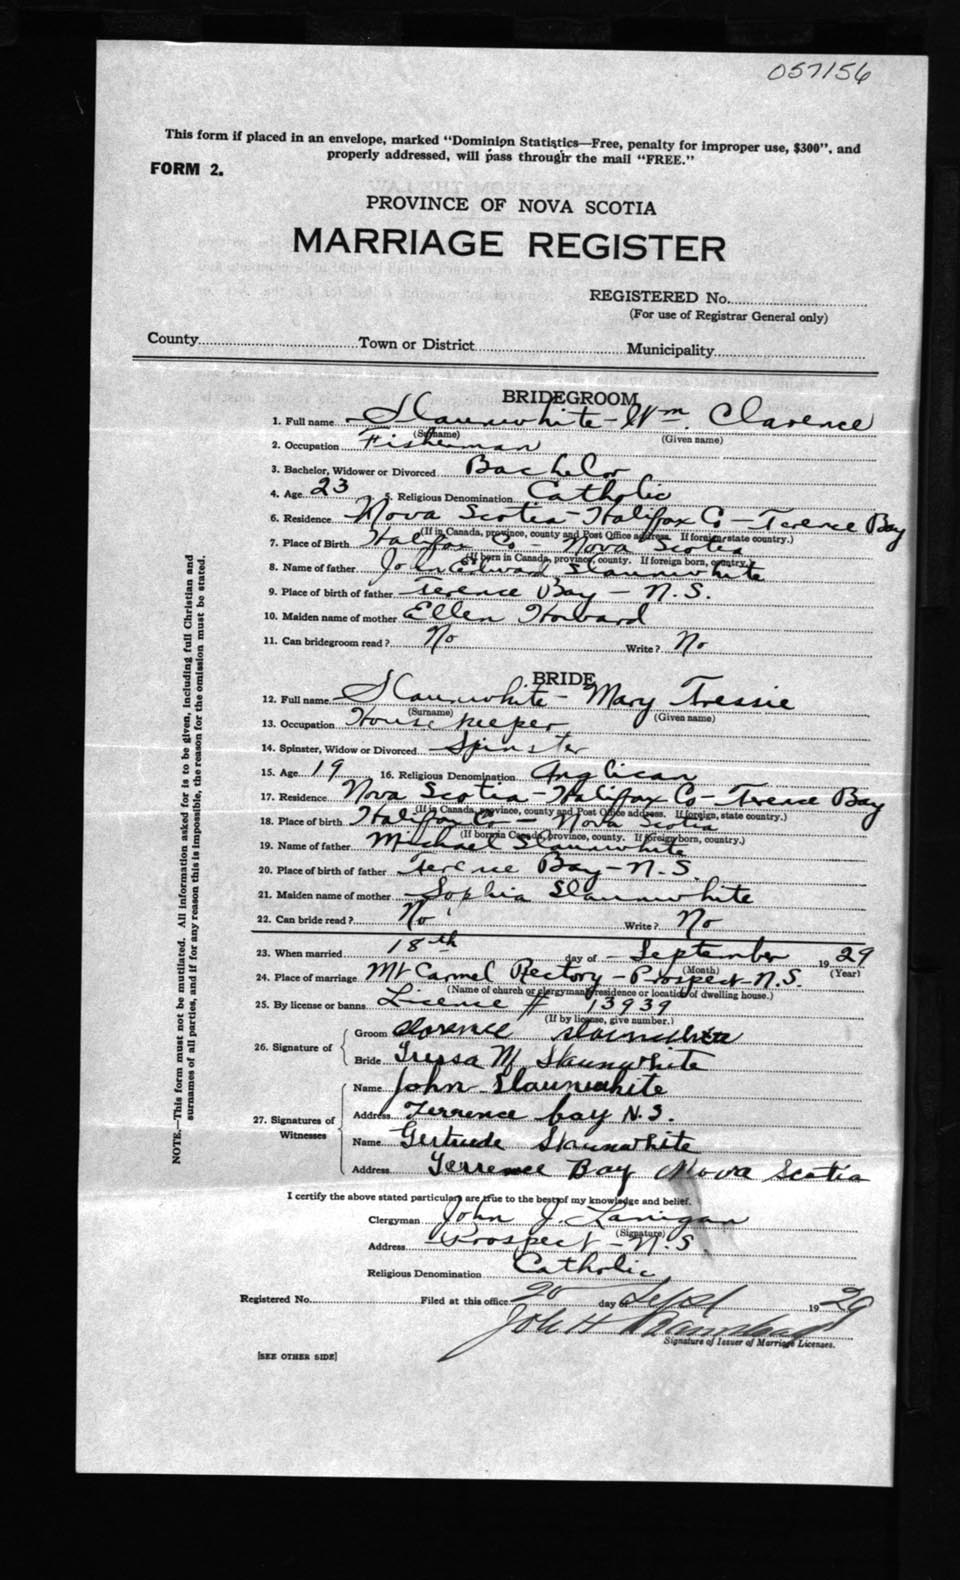 057156
This form if placed in an envelope, marked "Dominion Statistics—Free, penalty for improper use, $300", and
properly addressed, will pass through the mail "FREE."
FORM 2.
PROVINCE OF NOVA SCOTIA
MARRIAGE REGISTER
REGISTERED No.
(For use of Registrar General only)
County Town or District Municipality
BRIDEGROOM
1. Full name Slaunwhite - Wm. Clarence
(Surname) (Given name)
2. Occupation Fisherman
3. Bachelor, Widower or Divorced Bachelor
4. Age 23 5. Religious Denomination Catholic
6. Residence Nova Scotia - Halifax Co - Terence Bay
(If in Canada, province, county and Post Office address. If foreign, state country.)
7. Place of Birth Halifax Co - Nova Scotia
(If born in Canada, province, county. If foreign born, country.)
8. Name of father John Edward Slaunwhite
9. Place of birth of father Terence Bay - N.S.
10. Maiden name of mother Ellen Howard
11. Can bridegroom read? No Write? No
BRIDE
12. Full name Slaunwhite - Mary Tressie
(Surname) (Given name)
13. Occupation House keeper
14. Spinster, Widow or Divorced Spinster
15. Age 19 16. Religious Denomination Anglican
17. Residence Nova Scotia - Halifax Co - Terence Bay
(If in Canada, province, county and Post Office address. If foreign, state country.)
18. Place of birth Halifax Co - Nova Scotia
(If born in Canada, province, county. If foreign born, country.)
19. Name of father Michael Slaunwhite
20. Place of birth of father Terence Bay - N.S.
21. Maiden name of mother Sophia Slaunwhite
22. Can bride read? No Write? No
23. When married 18th day of September 1929
(Month) (Year)
24. Place of marriage Mt Carmel Rectory - Prospect - N.S.
(Name of church or clergyman's residence or location of dwelling house.)
25. By license or banns Licence # 13939
(If by license, give number.)
26. Signature of Groom Clarence Slaunwhite
Bride Tressa M Slaunwhite
27. Signatures of Witnesses Name John Slaunwhite
Address Terrence bay N.S.
Name Gertrude Slaunwhite
Address Terrence Bay Nova Scotia
I certify the above stated particulars are true to the best of my knowledge and belief.
Clergyman John J. Lanigan
(Signature)
Address Prospect - N.S.
Religious Denomination Catholic
Registered No. Filed at this office 20 day of Sept 1929
John H
Signature of Issuer of Marriage Licenses.
[SEE OTHER SIDE]
NOTE.—This form must not be mutilated. All information asked for is to be given, including full Christian and
surnames of all parties, and if for any reason this is impossible, the reason for the omission must be stated.